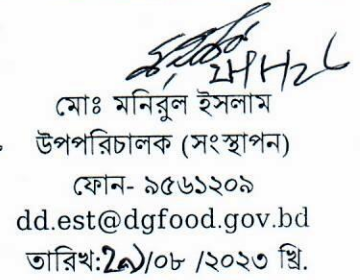 মোঃ মনিরুল ইসলাম
উপপরিচালক (সংস্থাপন)
ফোন- ৯৫৬১২০৯
dd.est@dgfood.gov.bd
তারিখ:২৯/০৮ /২০২৩ খ্রি.